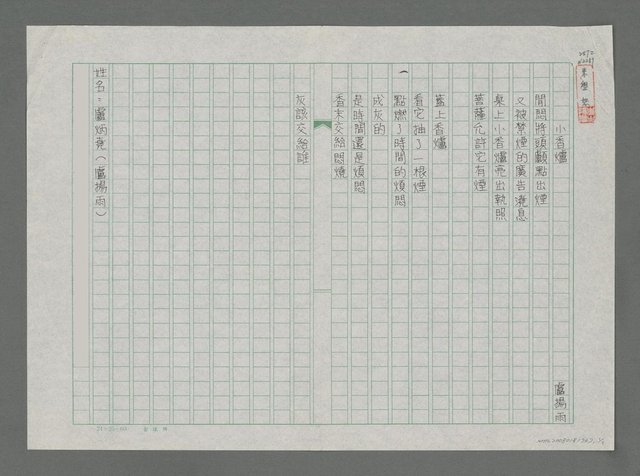 小香爐
盧揚雨
閒悶將頭顱點出煙
又被禁煙的廣告澆息
桌上小香爐亮出執照
菩薩允許它有煙
蓋上香爐
看它抽了一根煙
點燃了時間的煩悶
成灰的
是時間還是煩悶
香末交給悶燒
灰該交給誰
姓名：盧炳堯（盧揚雨）